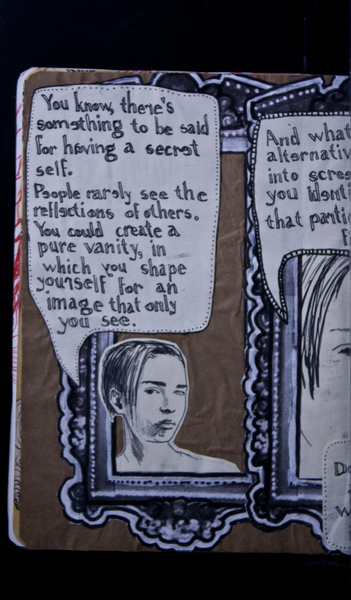 You know, there's
something to be said
for having a secret
self.
People rarely see the
reflections of others.
You could create a
pure vanity, in
which you shape
yourself for an
image that only
you see.
And what
into
you
that